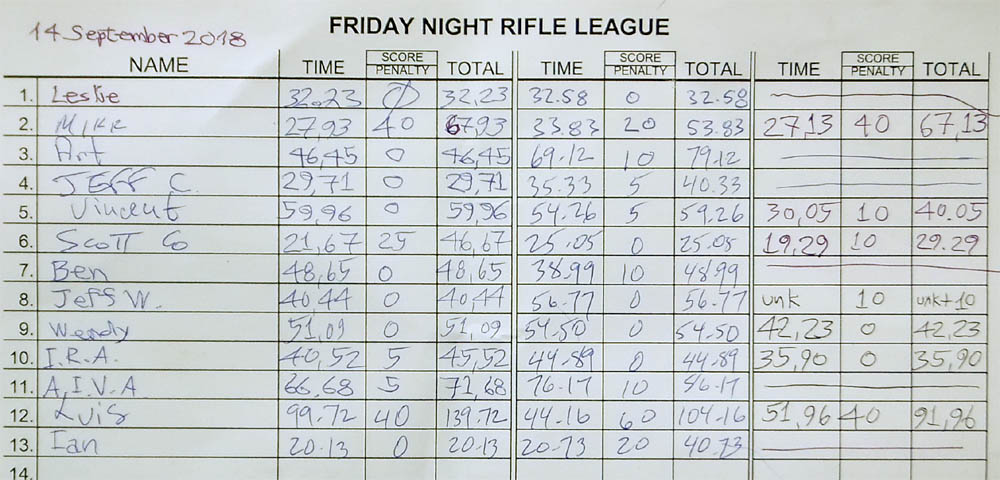 14 September 2018
FRIDAY NIGHT RIFLE LEAGUE
NAME TIME SCORE PENALTY TOTAL TIME SCORE PENALTY TOTAL TIME SCORE PENALTY TOTAL
1. Leslie 32.23 0 32,23 32.58 0 32.58
2. MIKE 27,93 40 67,93 33.83 20 53.83 27,13 40 67,13
3. Art 46,45 0 46,45 69.12 10 79.12
4. JEFF C. 29,71 0 29,71 35.33 5 40.33
5. Vincent 59,96 0 59,96 54.26 5 59.26 30,05 10 40.05
6. SCOTT Co 21,67 25 46,67 25.05 0 25.05 19,29 10 29.29
7. Ben 48,65 0 48,65 38.99 10 48.99
8. Jeff W. 40,44 0 40,44 56.77 0 56.77 unk 10 unk+10
9. Wendy 51,09 0 51,09 54.50 0 54.50 42,23 0 42,23
10. I.R.A. 40,52 5 45,52 44.89 0 44.89 35,90 0 35,90
11. A,I.V.A 66,68 5 71,68 76.17 10 86.17
12. Luis 99.72 40 139.72 44.16 60 104.16 51,96 40 91,96
13. Ian 20.13 0 20.13 20.73 20 40.73
14.